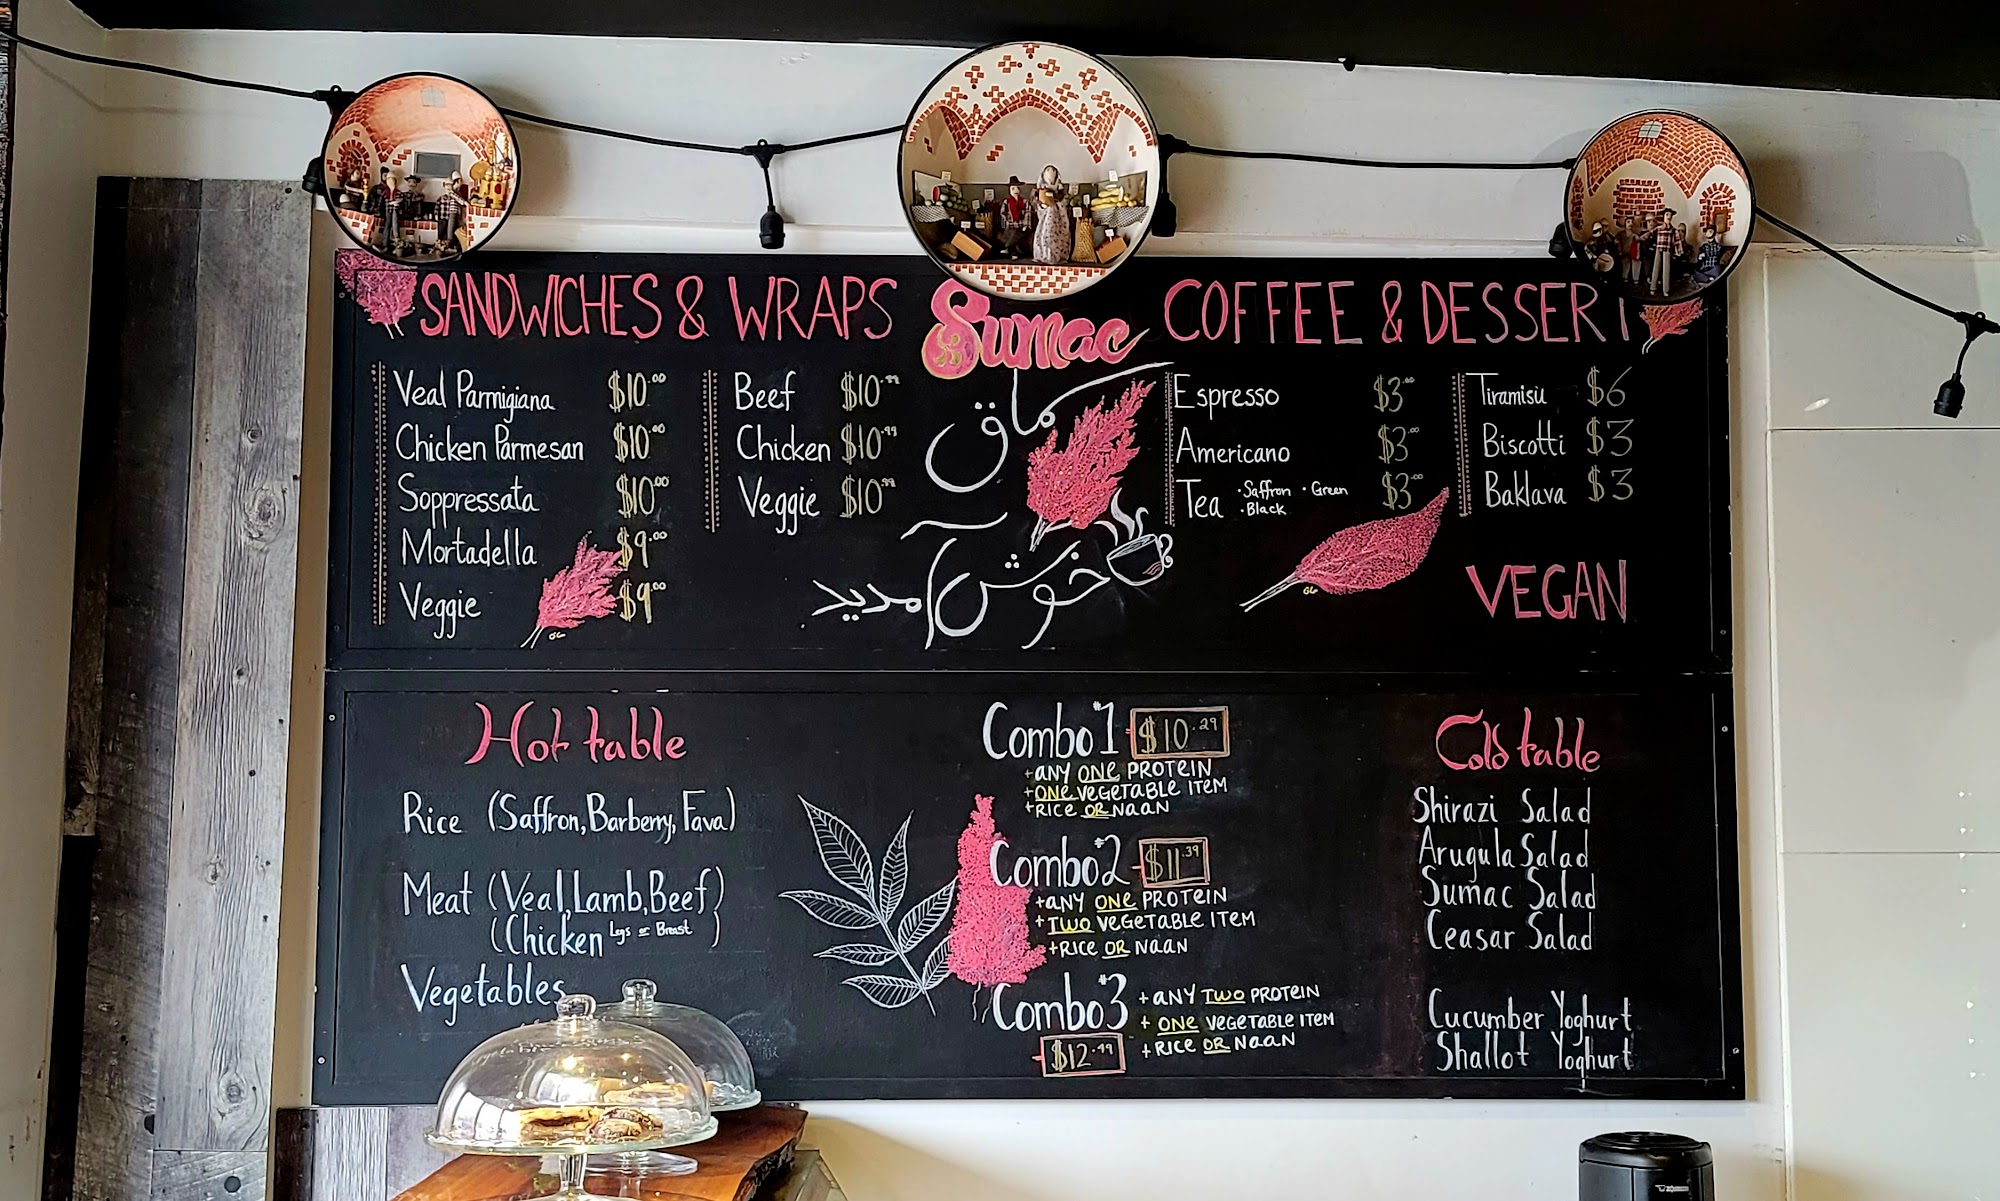 SANDWICHES & WRAPS
Veal Parmigiana $10.00
Chicken Parmesan $10.00
Soppressata $10.00
Mortadella $9.00
Veggie $9.00
Beef $10.99
Chicken $10.99
Veggie $10.99
Sumac
سماق
خوش آمدید
COFFEE & DESSERT
Espresso $3.00
Americano $3.00
Tea • Saffron • Green $3.00
• Black
Tiramisu $6
Biscotti $3
Baklava $3
VEGAN
Hot table
Rice (Saffron, Barberry, Fava)
Meat (Veal, Lamb, Beef)
(Chicken Legs or Breast )
Vegetables
Combo #1 - $10.29
+ANY ONE PROTEIN
+ONE VEGETABLE ITEM
+RICE OR NAAN
Combo #2 - $11.39
+ANY ONE PROTEIN
+TWO VEGETABLE ITEM
+RICE OR NAAN
Combo #3
- $12.49
+ANY TWO PROTEIN
+ ONE VEGETABLE ITEM
+RICE OR NAAN
Cold table
Shirazi Salad
Arugula Salad
Sumac Salad
Ceasar Salad
Cucumber Yoghurt
Shallot Yoghurt